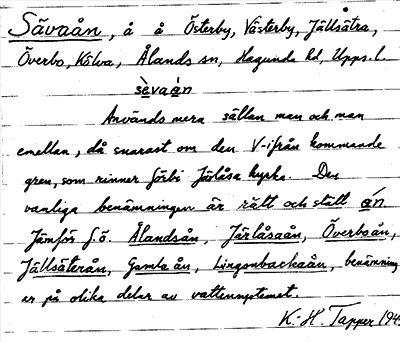 Sävaån, å å Österby, Västerby, Jällsätra,
Överbo, Kölva, Ålands sn, Hagunda hd, Upps. l.
sè̱vaá̱n
Används mera sällan man och man
emellan, då snarast om den V-ifrån kommande
gren, som rinner förbi Järlåsa kyrka. Den
vanliga benämningen är rätt och slätt á̱n
Jämför f.ö. Ålandsån, Järlåsaån, Överboån,
Jällsäterån, Gamla ån, Lingonbackaån, benämning
ar på olika delar av vattensystemet.
K.-H. Tapper 194